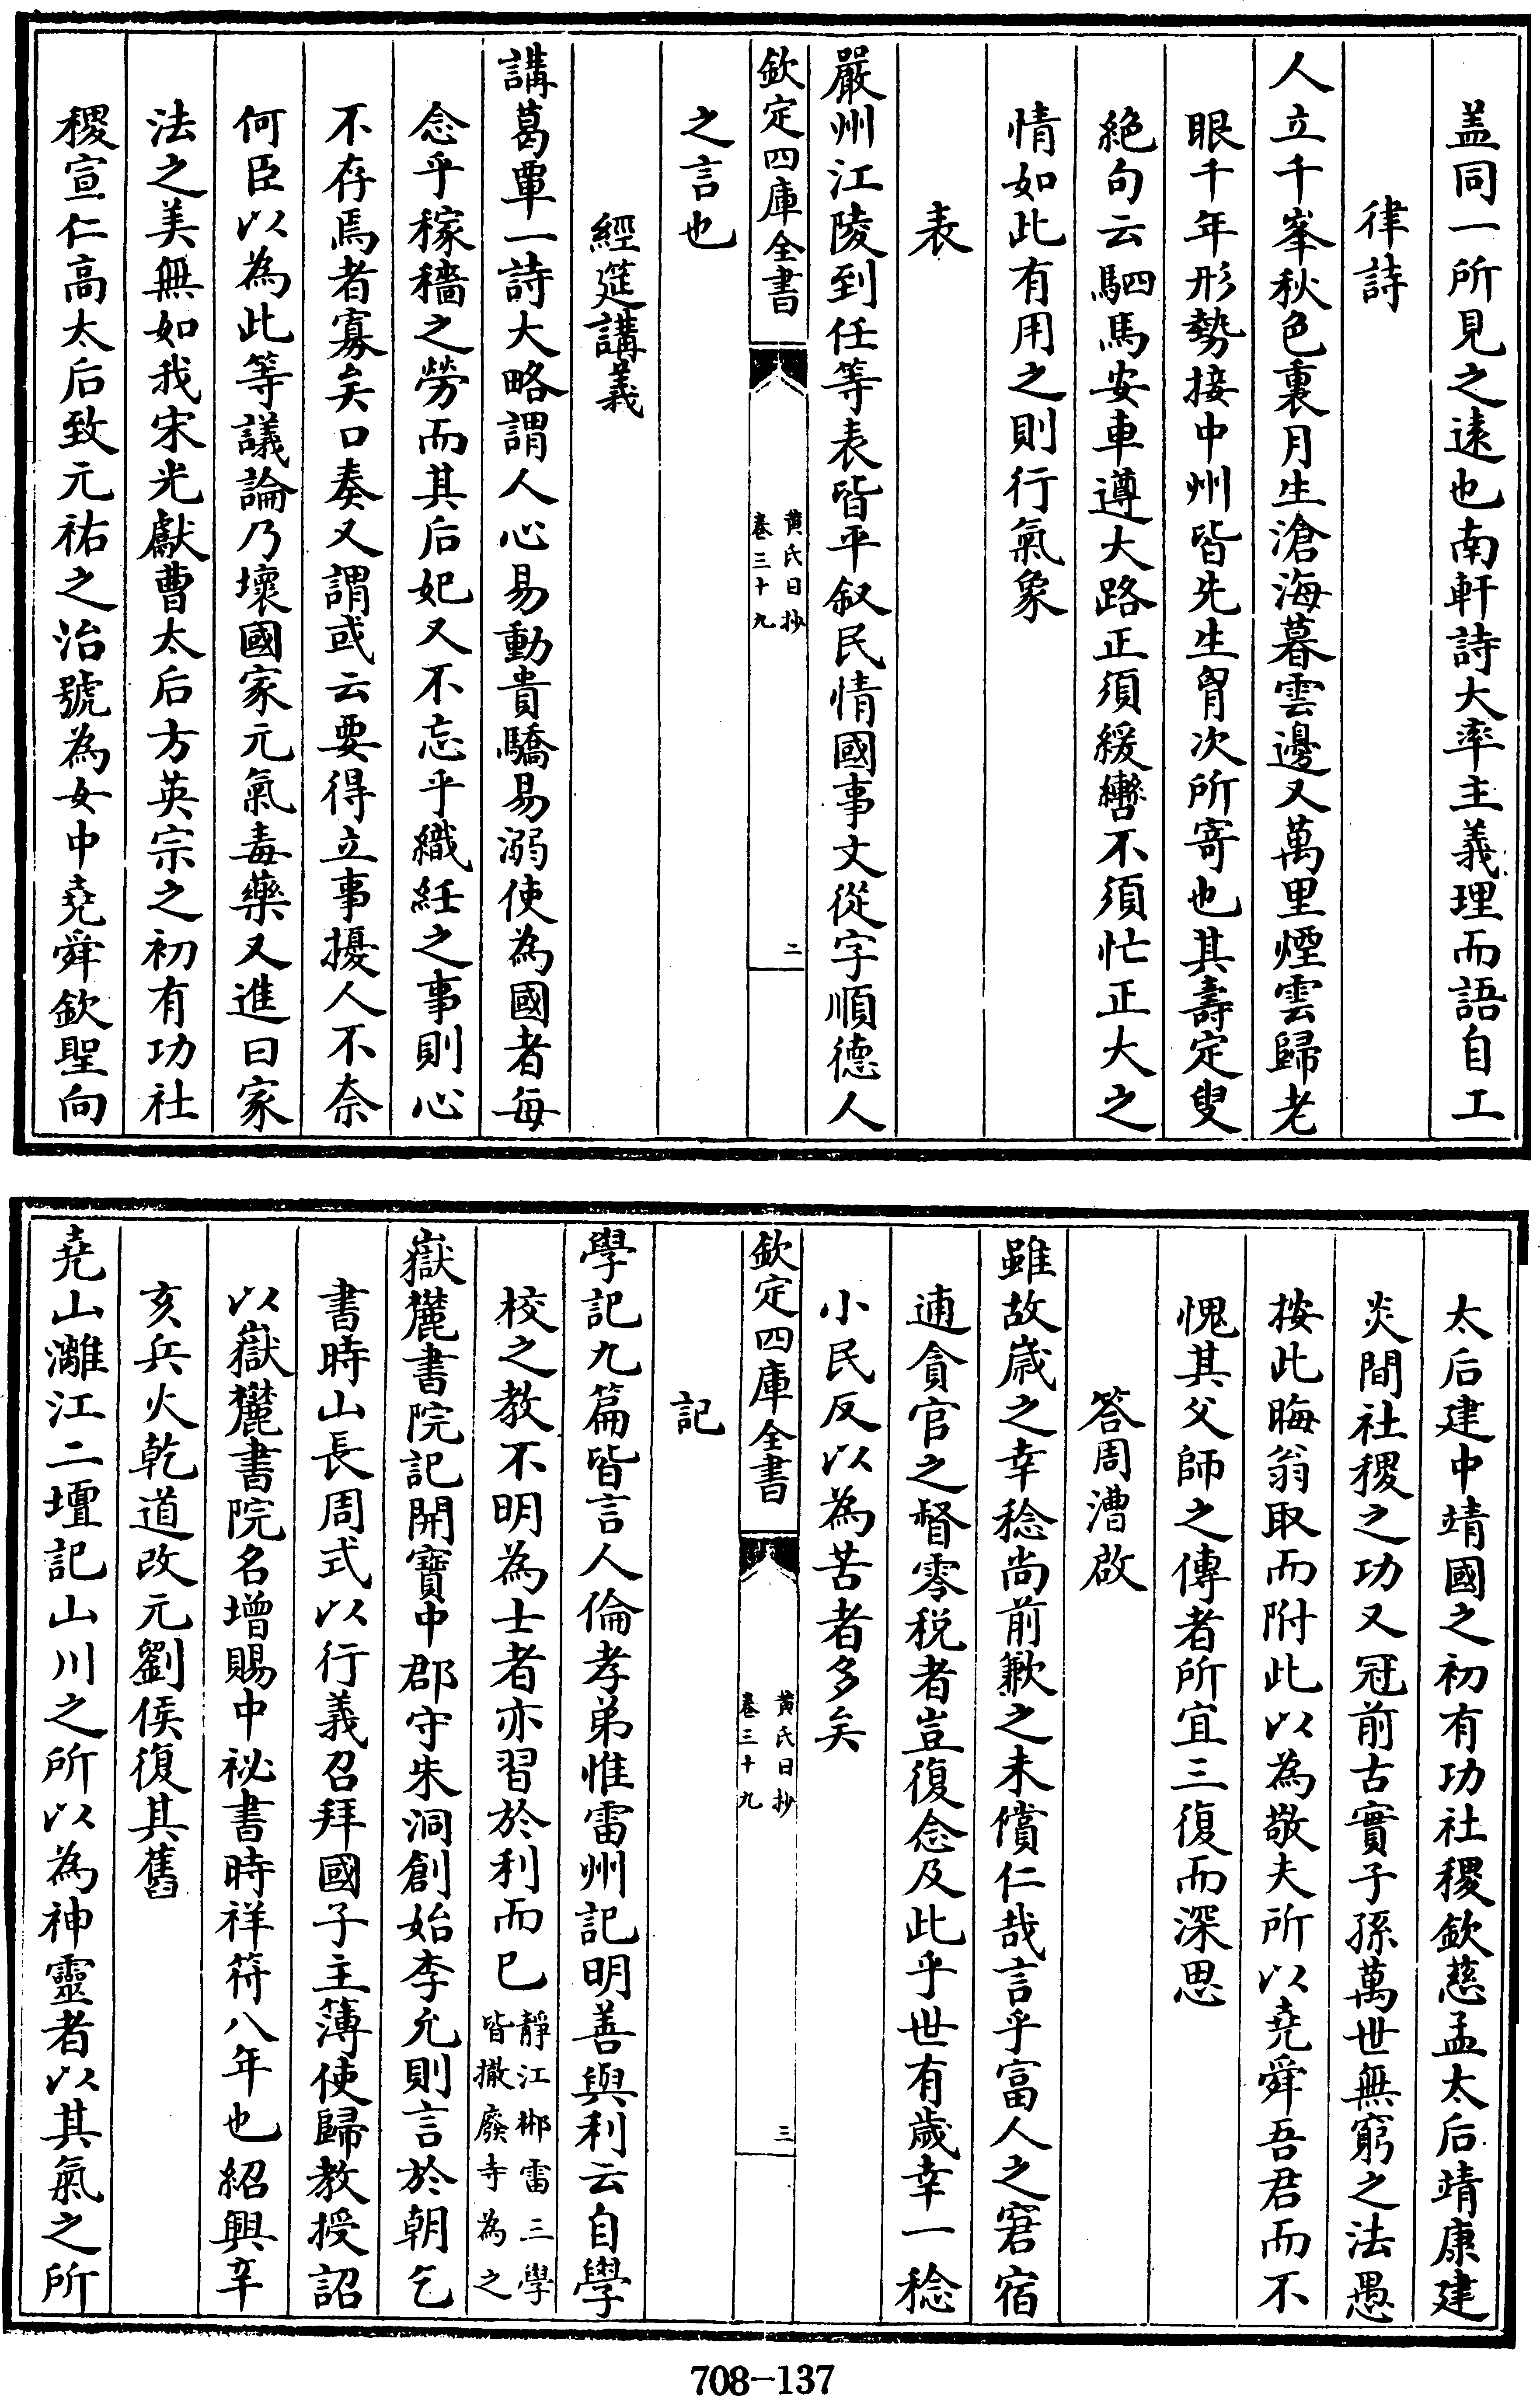 盖同一所見之逺也南軒詩大率主義理而語自工
律詩
人立千峯秋色裏月生滄海暮雲邊又萬里煙雲歸老
眼千年形勢接中州皆先生胷次所寄也其壽定叟
絶句云駟馬安車遵大路正須緩轡不須忙正大之
情如此有用之則行氣象
表
嚴州江陵到任等表皆平叙民情國事文從字順德人
欽定四庫全書
黄氏日抄
卷三十九
二
之言也
經筵講義
講葛覃一詩大略謂人心易動貴驕易溺使為國者每
念乎稼穡之勞而其后妃又不忘乎織紝之事則心
不存焉者寡矣口奏又謂或云要得立事擾人不奈
何臣以為此等議論乃壞國家元氣毒藥又進曰家
法之美無如我宋光獻曹太后方英宗之初有功社
稷宣仁高太后致元祐之治號為女中堯舜欽聖向
太后建中靖國之初有功社稷欽慈孟太后靖康建
炎間社稷之功又冠前古實子孫萬世無窮之法愚
按此晦翁取而附此以為敬夫所以堯舜吾君而不
愧其父師之傳者所宜三復而深思
答周漕啟
雖故嵗之幸稔尚前歉之未償仁哉言乎富人之窘宿
逋貪官之督零税者豈復念及此乎世有歲幸一稔
小民反以為苦者多矣
欽定四庫全書
黄氏日抄
卷三十九
三
記
學記九篇皆言人倫孝弟惟雷州記明善與利云自學
校之教不明為士者亦習於利而已靜江郴雷三學
皆撤廢寺為之
嶽麓書院記開寶中郡守朱洞創始李允則言於朝乞
書時山長周式以行義召拜國子主薄使歸教授詔
以嶽麓書院名增賜中祕書時祥符八年也紹興辛
亥兵火乾道改元劉侯復其舊
堯山灕江二壇記山川之所以為神靈者以其氣之所
708-137